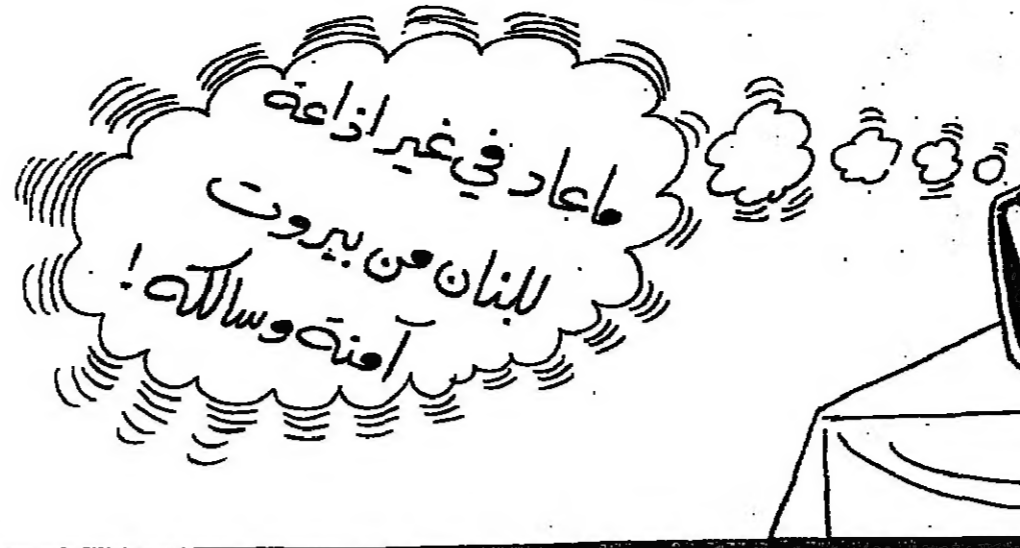 ما عاد في غير اذاعة
لبنان من بيروت
آمنة وسالكه !